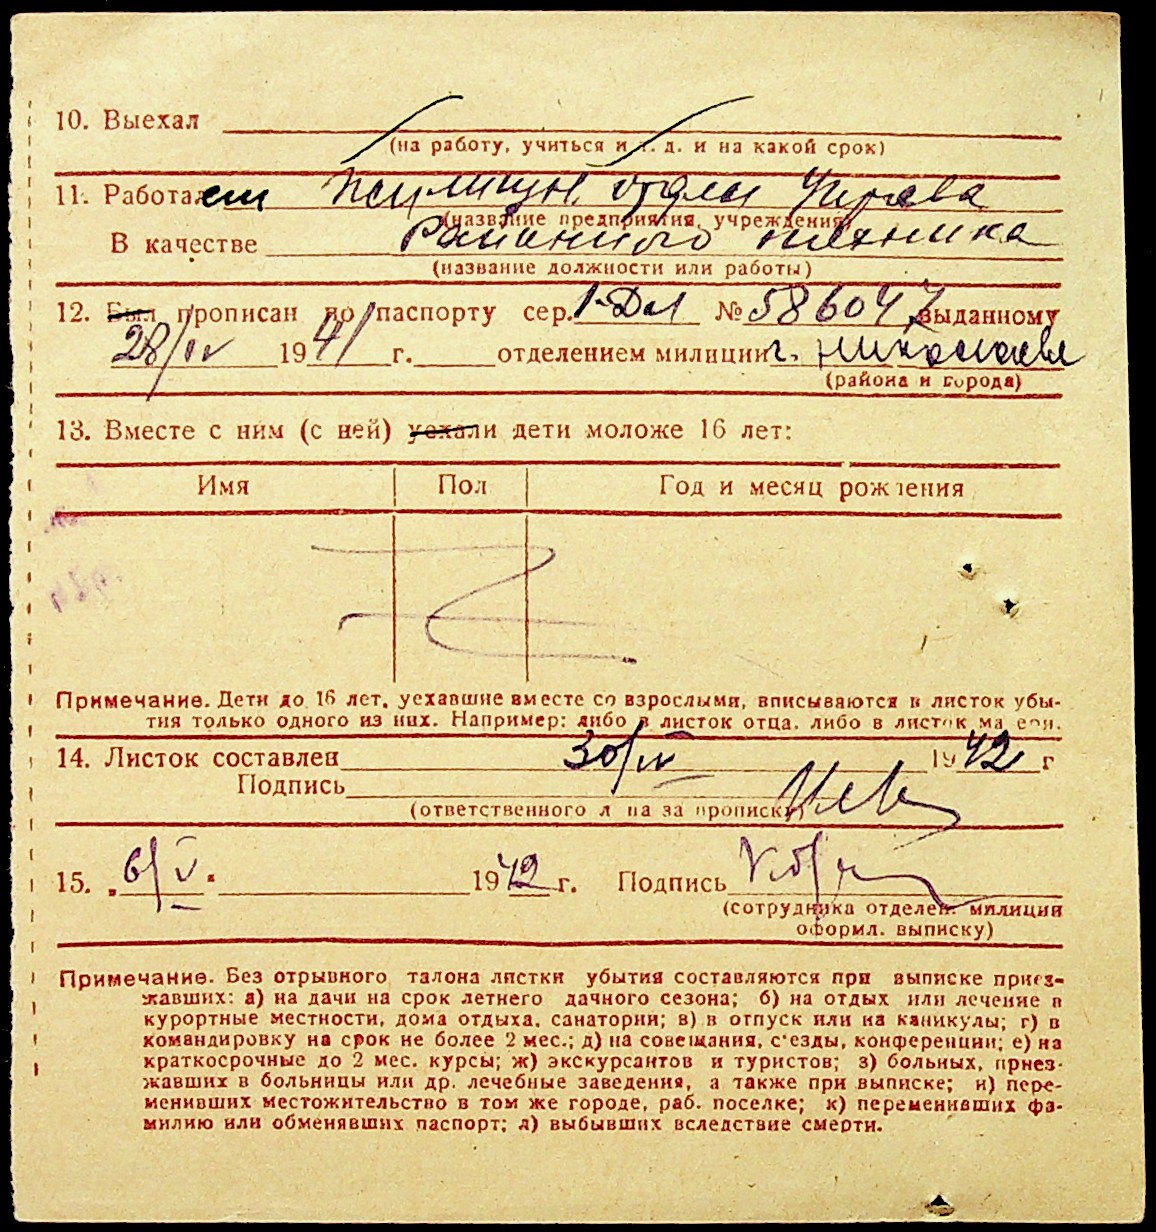 10. Выехал
(на работу, учиться и т. д. и на какой срок)
11. Работает Жилищн. отдел Управа
(название предприятия, учреждения)
В качестве Районного техника
(название должности или работы)
12. Был прописан по паспорту сер. № 586047 выданному
28/IV 1941 г. отделением милиции г. Николаева
(района и города)
13. Вместе с ним (с ней) уехали дети моложе 16 лет:
Имя Пол Год и месяц рождения
Примечание. Дети до 16 лет, уехавшие вместе со взрослыми, вписываются в листок убы-
тия только одного из них. Например: либо в листок отца, либо в листок матери.
14. Листок составлен 30/IV 1942 г
Подпись
(ответственного лица за прописку)
15. „6/V“ 1942 г. Подпись
(сотрудника отделен. милиции
оформл. выписку)
Примечание. Без отрывного талона листки убытия составляются при выписке приез-
жавших: а) на дачи на срок летнего дачного сезона; б) на отдых или лечение в
курортные местности, дома отдыха, санатории; в) в отпуск или на каникулы; г) в
командировку на срок не более 2 мес.; д) на совещания, с'езды, конференции; е) на
краткосрочные до 2 мес. курсы; ж) экскурсантов и туристов; з) больных, приез-
жавших в больницы или др. лечебные заведения, а также при выписке; и) пере-
менивших местожительство в том же городе, раб. поселке; к) переменивших фа-
милию или обменявших паспорт; л) выбывших вследствие смерти.